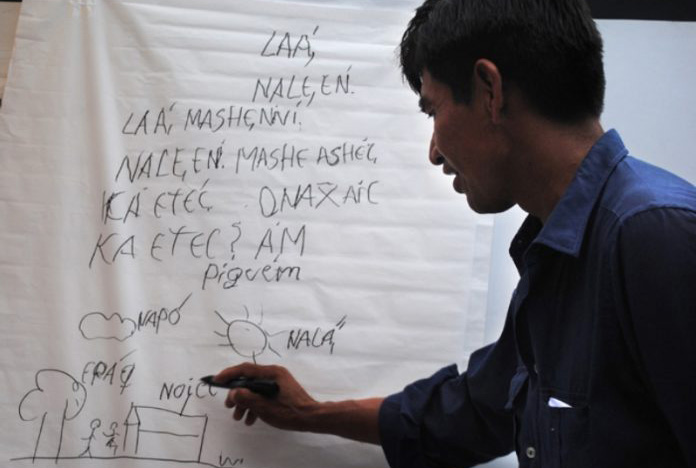 LAÁ,
NALE,EN.
LAÁ, MASHE,NVÍ.
NALE,EN. MASHE ASHÉT,
KÁ ETEC, . QNAXAIC
KA ETEC? ÁM
Piguém
NAPÓ
NALÁ,
EPÁQ
NOJEC